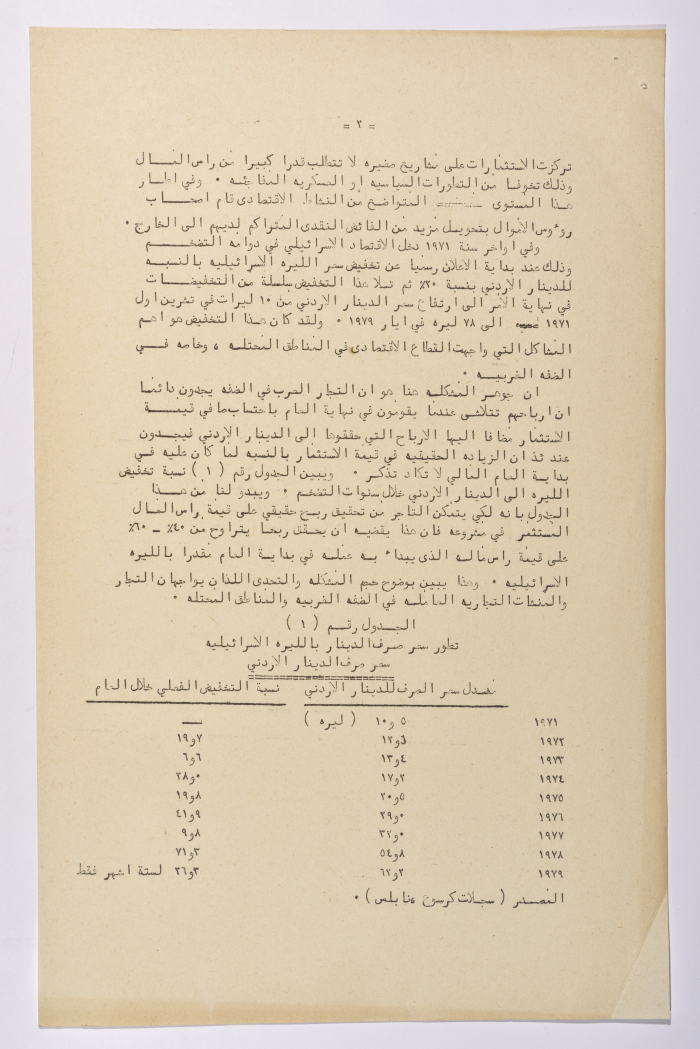 = ٢ =
تركزت الاستثمارات على مشاريع صغيره لا تتطلب قدرا كبيرا من راس المال
وذلك تخوفا من التطورات السياسيه او العسكريه المفاجئه . وفي اطار
هذا المستوى المتواضع من النشاط الاقتصادى قام اصحاب
روءوس الاموال بتحويل مزيد من الفائض النقدى المتراكم لديهم الى الخارج .
وفي اواخر سنة ١٩٧١ دخل الاقتصاد الاسرائيلي في دوامه التضخم
وذلك عند بداية الاعلان رسميا عن تخفيض سعر الليره الاسرائيليه بالنسبه
للدينار الاردني بنسبة ٢٠٪ ثم تلا هذا التخفيض سلسلة من التخفيضات
في نهاية الامر الى ارتفاع سعر الدينار الاردني من ١٠ ليرات في تشرين اول
١٩٧١ الى ٧٨ ليره في ايار ١٩٧٩ . ولقد كان هذا التخفيض هو اهم
المشاكل التي واجهت القطاع الاقتصادى في المناطق المحتله ، وخاصه في
الضفه الغربيه .
ان جوهر المشكله هنا هو ان التجار العرب في الضفه يجدون دائما
ان ارباحهم تتلاشى عندما يقومون في نهاية العام باحتساب ما في قيمة
الاستثمار مضافا اليها الارباح التي حققوها الى الدينار الاردني فيجدون
عند ئذ ان الزياده الحقيقيه في قيمة الاستثمار بالنسبه لما كان عليه في
بداية العام المالي لا تكاد تذكر . ويبين الجدول رقم ( ١ ) نسبة تخفيض
الليره الى الدينار الاردني خلال سنوات التضخم . ويبدو لنا من هذا
الجدول بانه لكي يتمكن التاجر من تحقيق ربح حقيقي على قيمة راس المال
المستثمر في مشروعه فان هذا يقضيه ان يحقق ربحا يتراوح من ٤٠٪ ــ ٦٠٪
على قيمة راس ماله الذى يبداء به عمله في بداية العام مقدرا بالليره
الاسرائيليه . وهذا يبين بوضوح حجم المشكله والتحدى اللذان يواجهان التجار
والمنشات التجاريه العامله في الضفه الغربيه والمناطق المحتله .
الجدول رقم ( ١ )
تطور سعر صرف الدينار بالليره الاسرائيليه
سعر صرف الدينار الاردني
معدل سعر الصرف للدينار الاردني نسبة التخفيض الفعلي خلال العام
١٩٧١ ٥و١٠ ( ليره ) ــ
١٩٧٢ ٦و١٢ ٧و١٩
١٩٧٣ ٤و١٣ ٦و٦
١٩٧٤ ٢و١٧ ٠و٢٨
١٩٧٥ ٥و٢٠ ٨و١٩
١٩٧٦ ٠و٢٩ ٩و٤١
١٩٧٧ ٠و٣٢ ٨و٩
١٩٧٨ ٨و٥٤ ٣و٧١
١٩٧٩ ٢و٦٢ ٣و٢٦ لستة اشهر فقط
المصدر ( سجلات كرسوع ، نابلس ) .